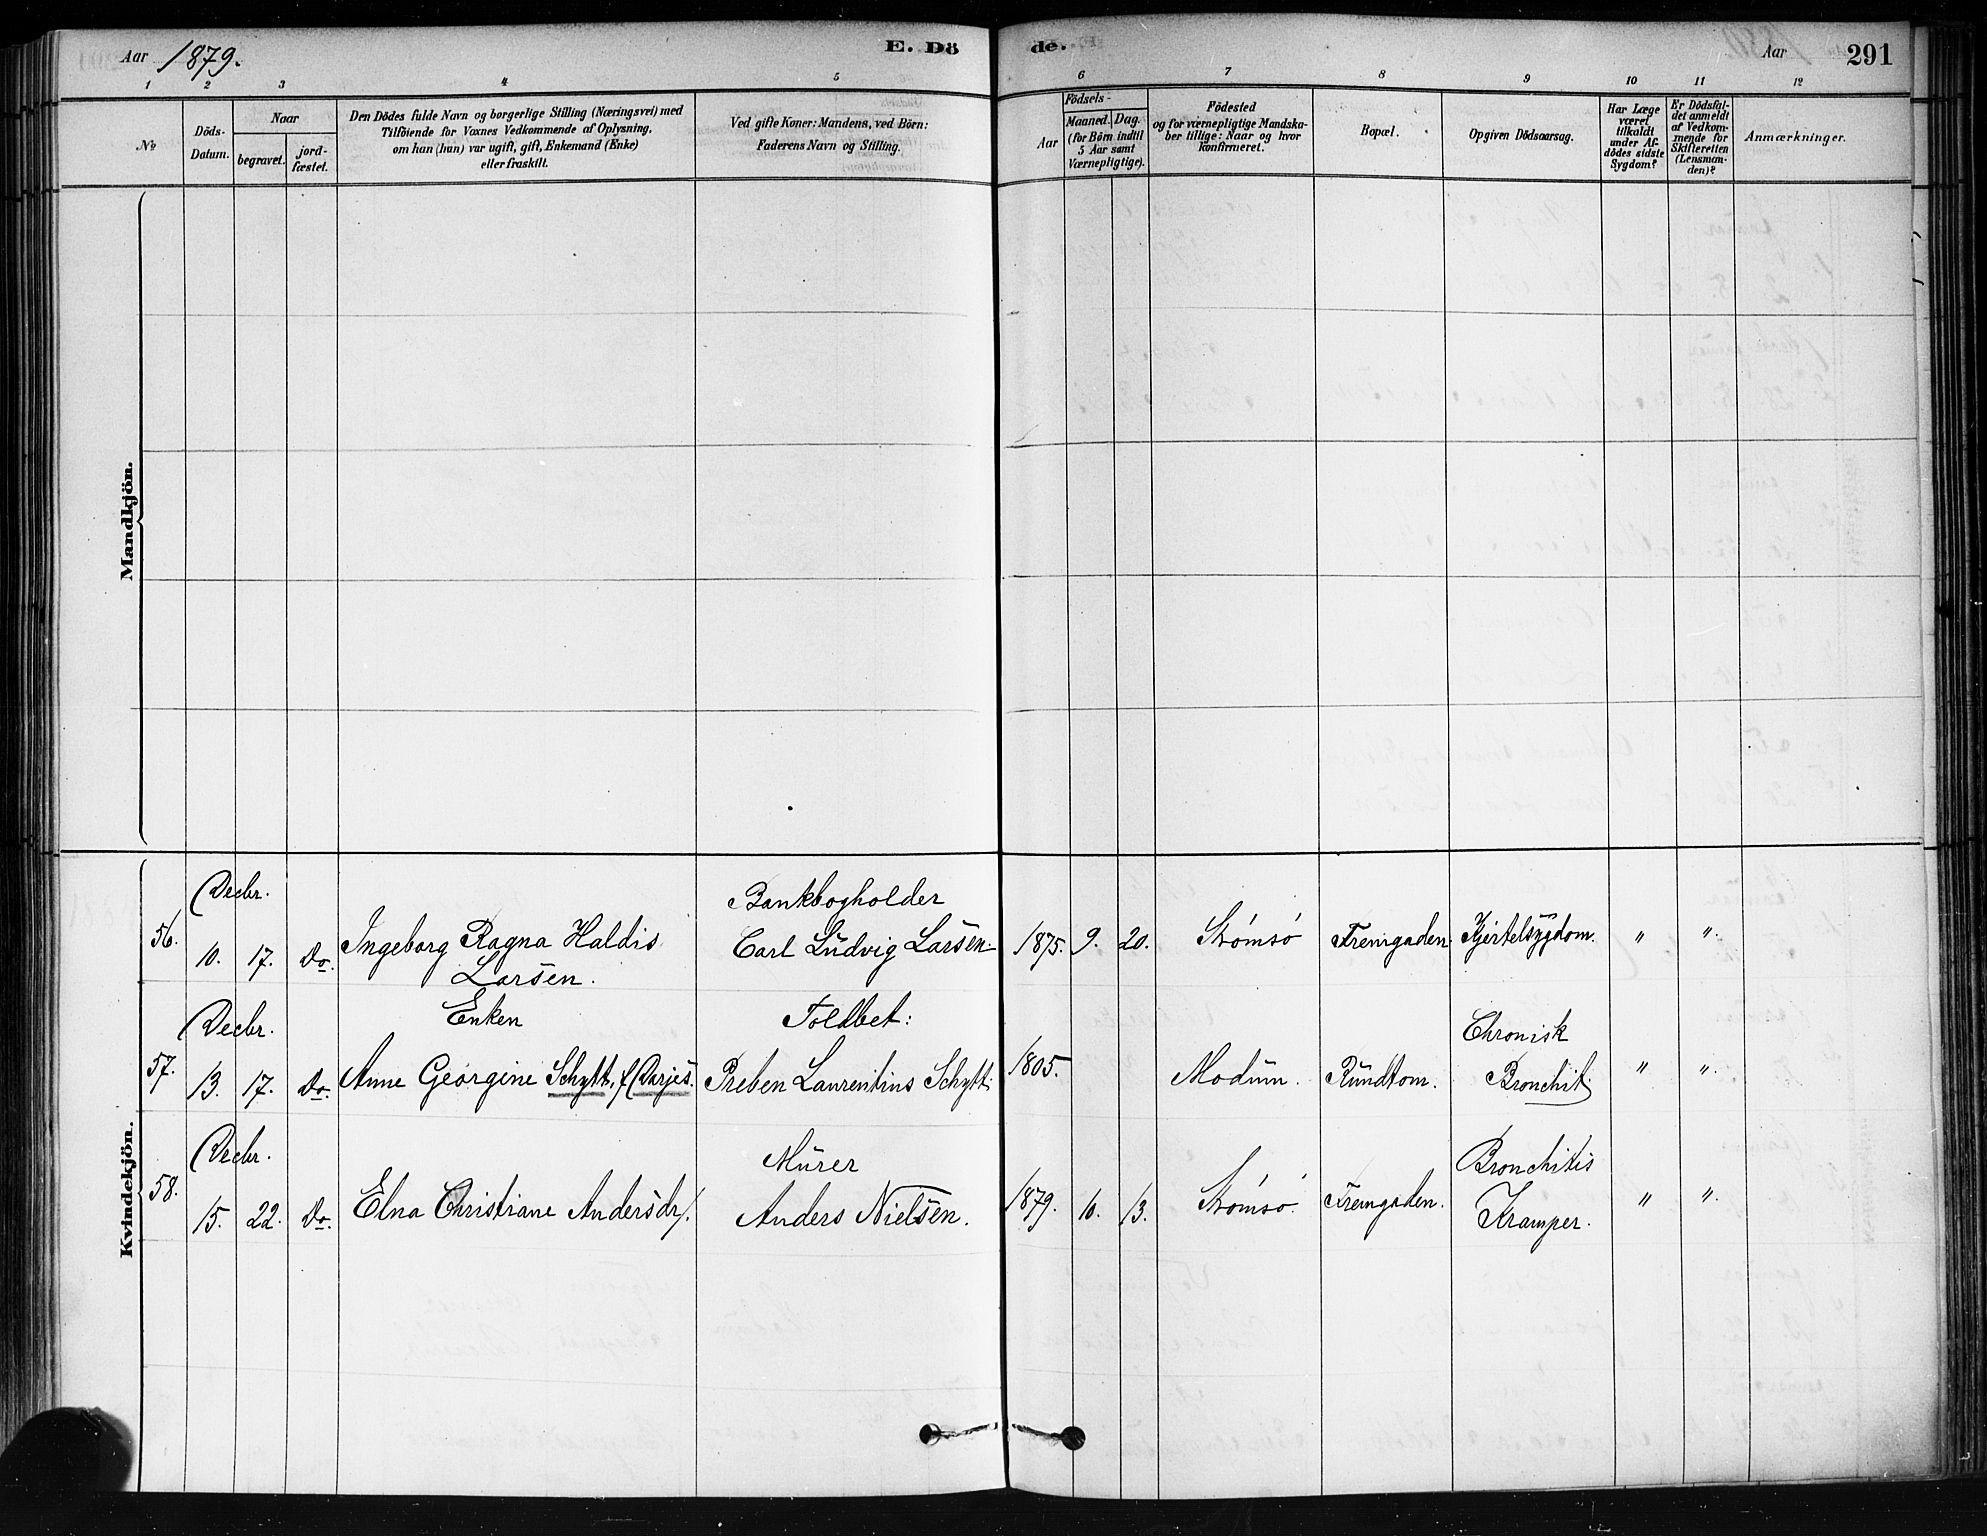 Aar 1879.
E. Dö
de.
Aar
291
1 2 3 4 5 6 7 8 9 10 11 12
No
Döds-
Datum.
Naar
begravet.
jord-
fæstet.
Den Dödes fulde Navn og borgerlige Stilling (Næringsvei) med
Tilföiende for Voxnes Vedkommende af Oplysning,
om han (hun) var ugift, gift, Enkemand (Enke)
eller fraskilt.
Ved gifte Koner: Mandens, ved Börn:
Faderens Navn og Stilling.
Födsels-
Aar
Maaned. Dag.
(for Börn indtil
5 Aar samt
Værnepligtige).
Födested
og for værnepligtige Mandska-
ber tillige: Naar og hvor
konfirmeret.
Bopæl.
Opgiven Dödsaarsag.
Har Læge
været
tilkaldt
under Af-
dödes sidste
Sygdom?
Er Dödsfal-
det anmeldt
af Vedkom-
mende for
Skifteretten
(Lensman-
den)?
Anmærkninger.
Mandkjön.
Kvindekjön.
Decbr. Bankbogholder
56. 10. 17. Do. Ingeborg Ragna Haldis Carl Ludvig Larsen 1875. 9. 20. Strömsö Fremgaden Kjertelsygdom. " ".
Larsen.
Decbr. Enken Toldbet: Chronisk
57. 13. 17. Do. Anne Georgine Schytt, f. Darjes. Preben Laurentius Schytt. 1805. Modum. Rundtom. Bronchit. " ".
Decbr. Murer Bronchitis
58. 15. 22. Do. Elna Christiane Andersdr/. Anders Nielsen. 1879. 10. 13. Strömsö. Fremgaden. Kramper. " ".